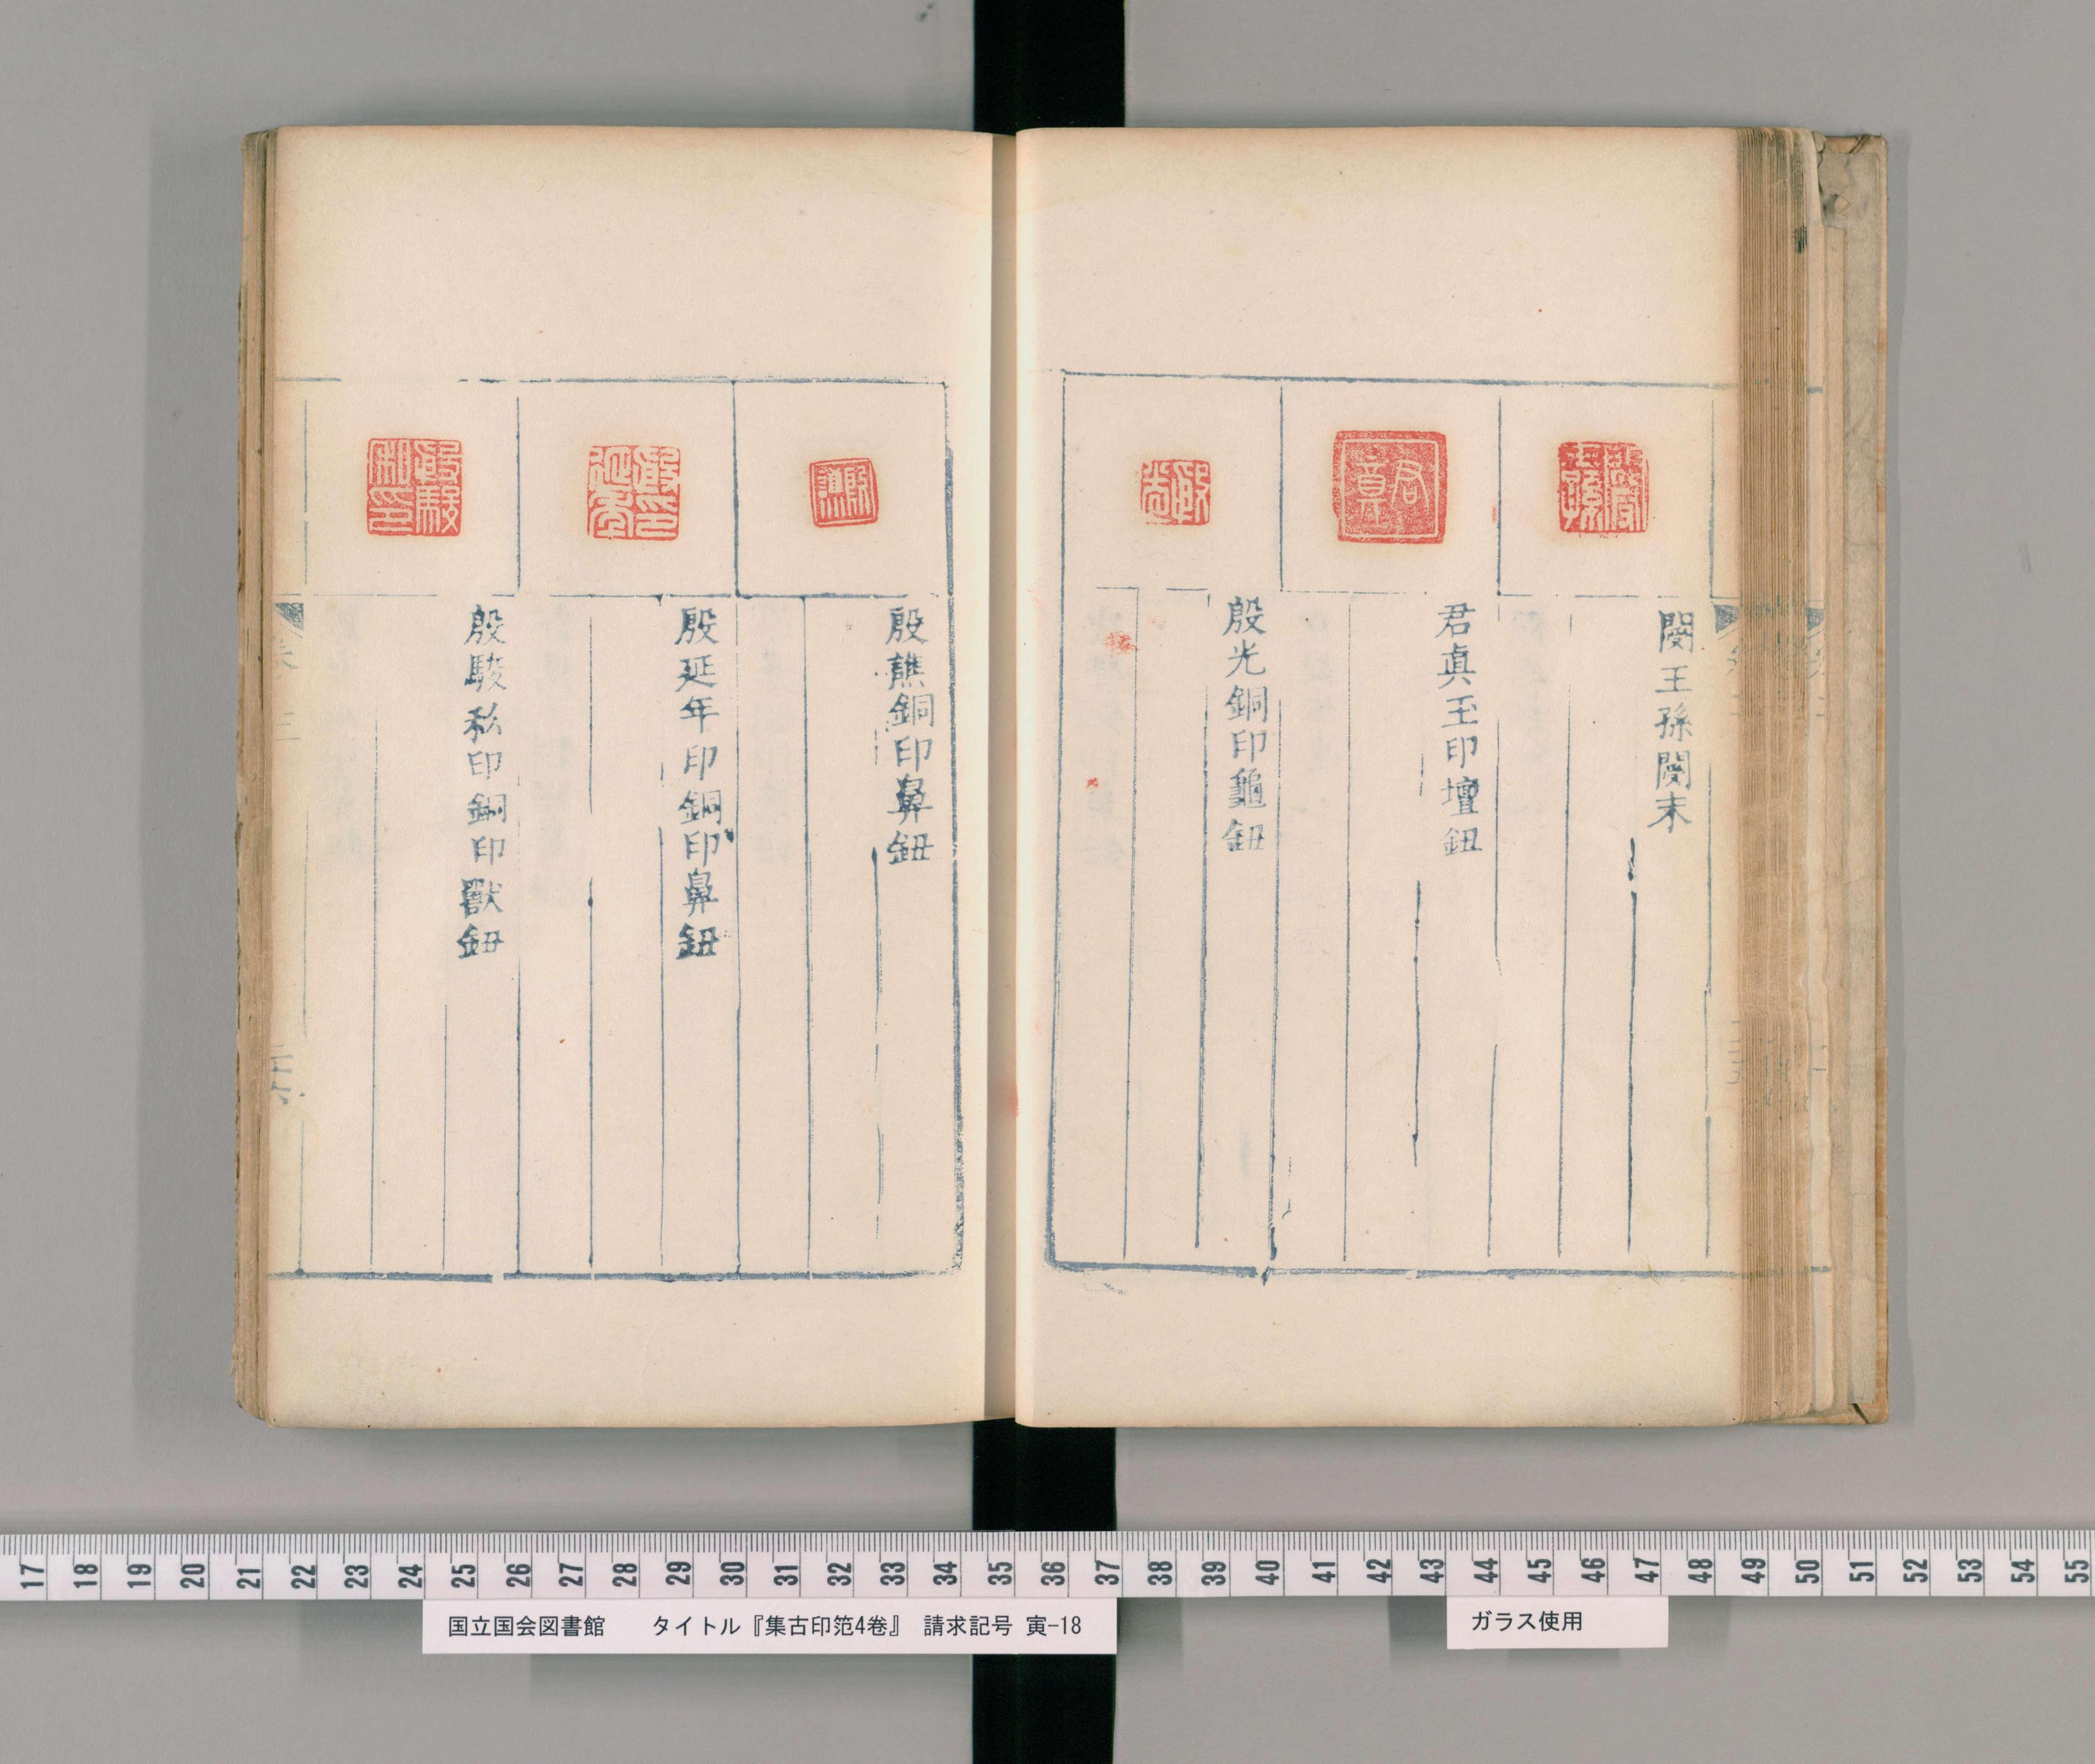 閔王孫閔末
君眞玉印壇鈕
殷光銅印龜鈕
殷譕銅印鼻鈕
殷延年印銅印鼻鈕
殷駿私印銅印獸鈕
17 18 19 20 21 22 23 24 25 26 27 28 29 30 31 32 33 34 35 36 37 38 39 40 41 42 43 44 45 46 47 48 49 50 51 52 53 54 55
国立国会図書館 タイトル『集古印范4巻』 請求記号 寅-18
ガラス使用